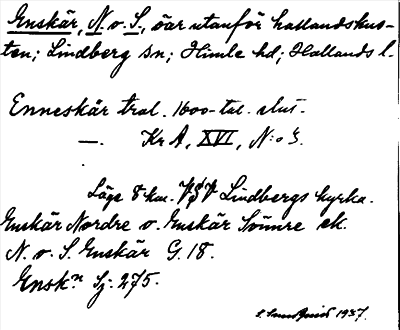 Enskär, N. o. S., öar utanför hallandskus-
ten; Lindberg sn; Himle hd; Hallands l.
Enneskär trol. 1600-tal. slut.
—. Kr A, XVI, N:o 3.
Läge 8 km. VSV Lindbergs kyrka.
Enskär Nordre o. Enskär Södre ek.
N. o. S. Enskär G. 18.
Ensk:n Sj. 275.
1937.